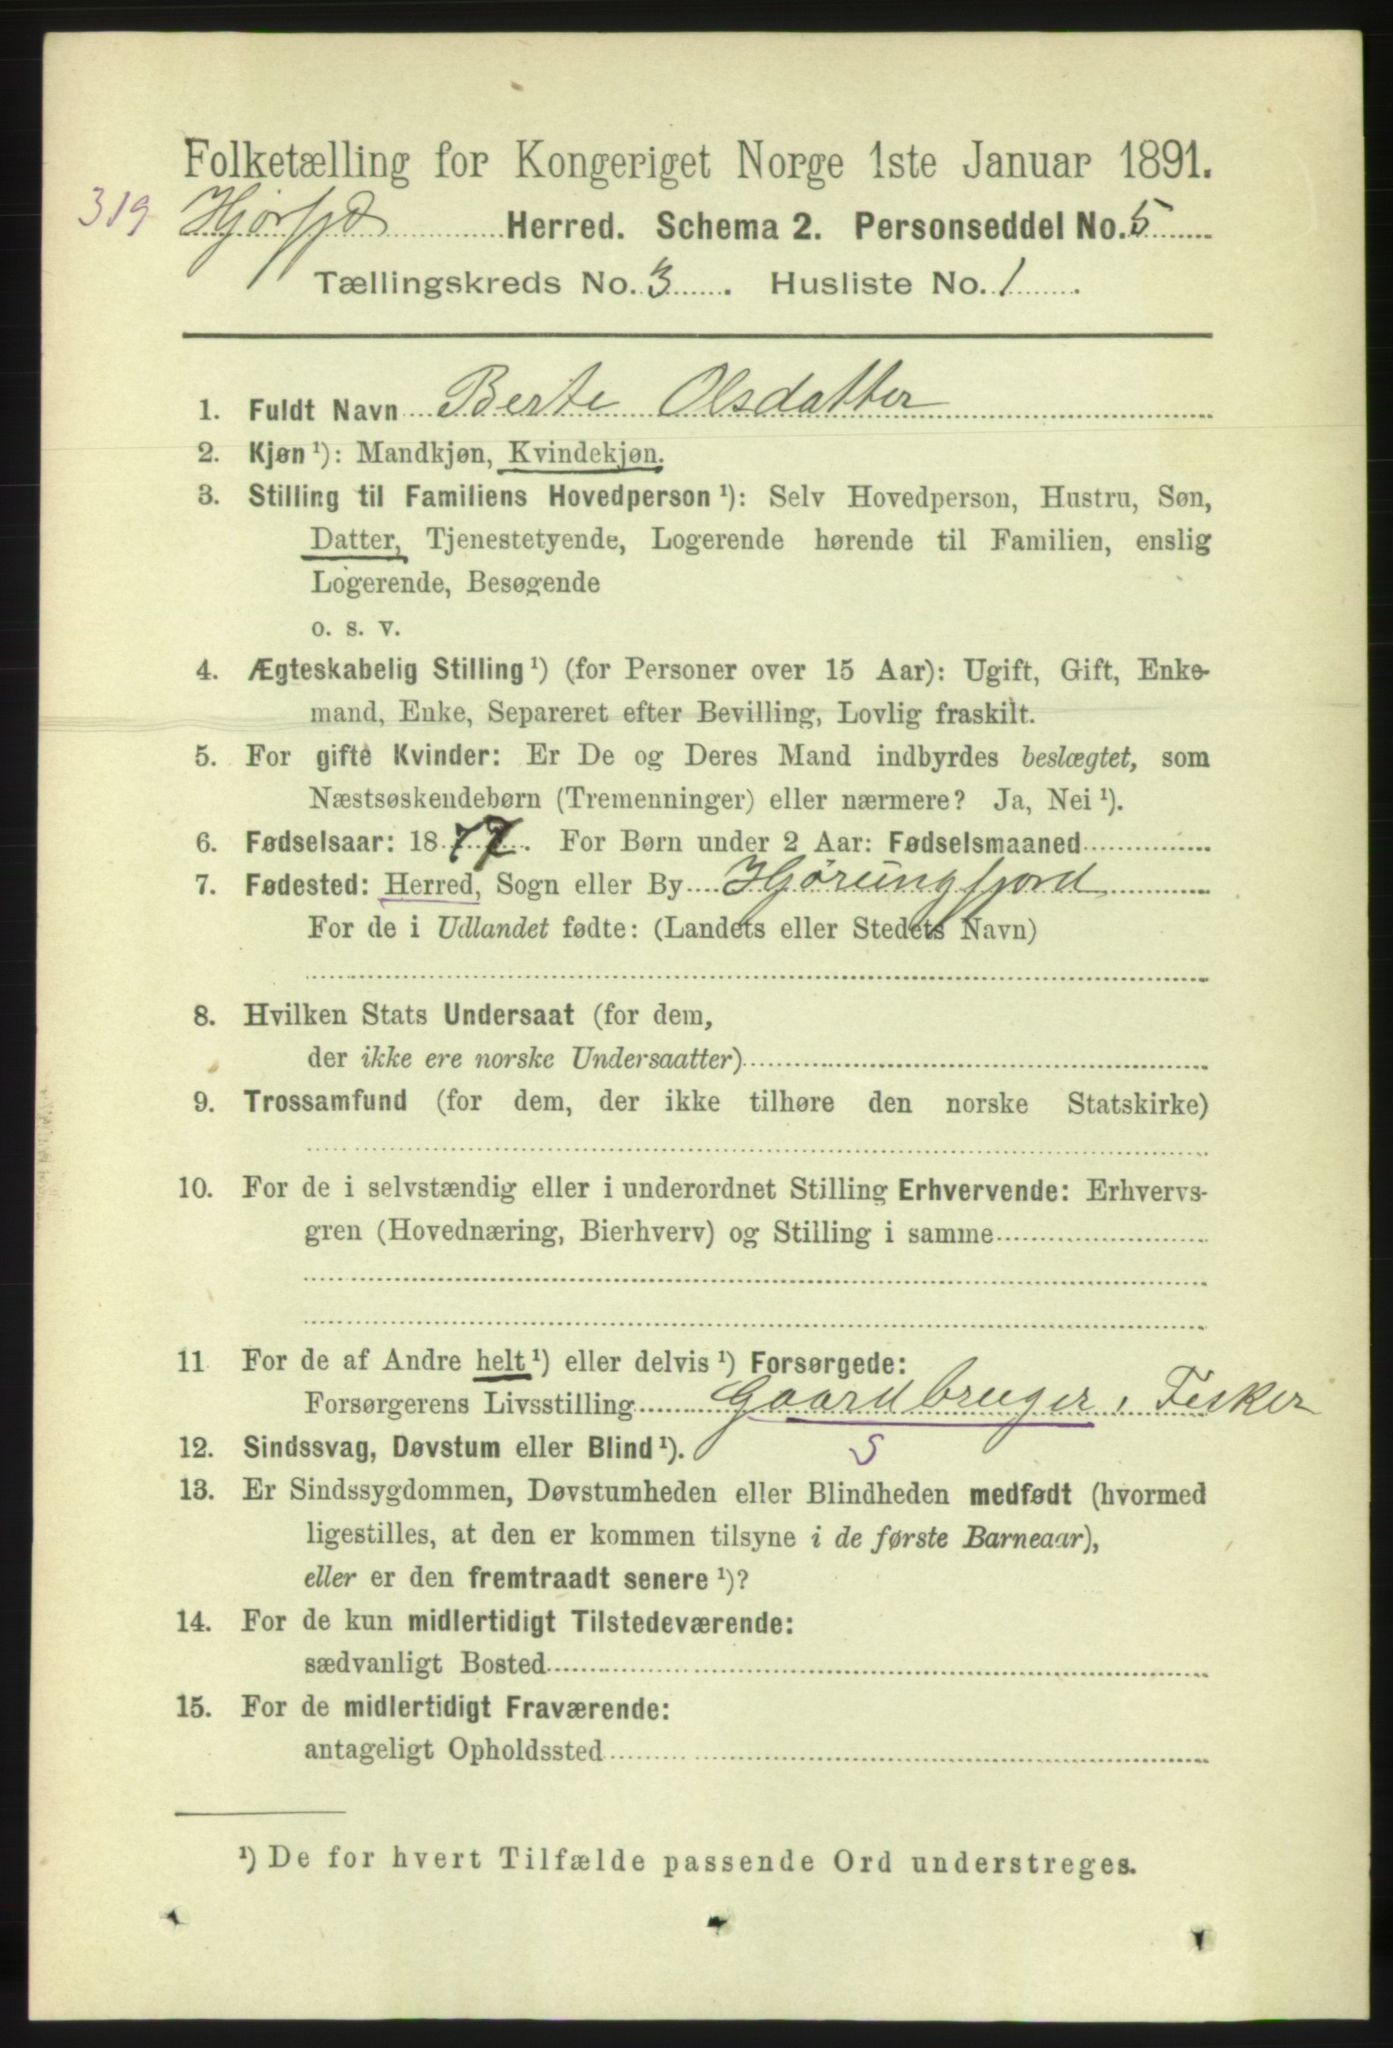 Folketælling for Kongeriget Norge 1ste Januar 1891.
319 Hjørfjd Herred. Schema 2. Personseddel No. 5
Tællingskreds No. 3. Husliste No. 1.
1. Fuldt Navn Berte Olsdatter
2. Kjøn ¹): Mandkjøn, Kvindekjøn.
3. Stilling til Familiens Hovedperson ¹): Selv Hovedperson, Hustru, Søn,
Datter, Tjenestetyende, Logerende hørende til Familien, enslig
Logerende, Besøgende
o. s. v.
4. Ægteskabelig Stilling ¹) (for Personer over 15 Aar): Ugift, Gift, Enke-
mand, Enke, Separeret efter Bevilling, Lovlig fraskilt.
5. For gifte Kvinder: Er De og Deres Mand indbyrdes beslægtet, som
Næstsøskendebørn (Tremenninger) eller nærmere? Ja, Nei ¹).
6. Fødselsaar: 1877. For Børn under 2 Aar: Fødselsmaaned
7. Fødested: Herred, Sogn eller By Hjørungfjord
For de i Udlandet fødte: (Landets eller Stedets Navn)
8. Hvilken Stats Undersaat (for dem,
der ikke ere norske Undersaatter)
9. Trossamfund (for dem, der ikke tilhøre den norske Statskirke)
10. For de i selvstændig eller i underordnet Stilling Erhvervende: Erhvervs-
gren (Hovednæring, Bierhverv) og Stilling i samme
11 For de af Andre helt ¹) eller delvis ¹) Forsørgede:
Forsørgerens Livsstilling Gaardbruger, Fisker
12. Sindssvag, Døvstum eller Blind ¹). S
13. Er Sindssygdommen, Døvstumheden eller Blindheden medfødt (hvormed
ligestilles, at den er kommen tilsyne i de første Barneaar),
eller er den fremtraadt senere ¹)?
14. For de kun midlertidigt Tilstedeværende:
sædvanligt Bosted
15. For de midlertidigt Fraværende:
antageligt Opholdssted
¹) De for hvert Tilfælde passende Ord understreges.